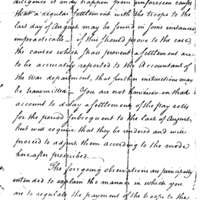 diligence it may happen from unforeseen causes
that a regular settlement with the troops to the
last day of August may be found in some instances
impracticable — if this should prove to be the case,
the causes which shall prevent a settlement are
to be accurately reported to the Accountant of
the War department, that further instructions may
be transmitted — You are not however on that
account to delay a settlement of the pay rolls
for the period subsequent to the last of August,
but will require that they be rendered and will
proceed to adjust them according to the mode
herein after prescribed.
The foregoing observations are principally
intended to explain the manner in which you
are to regulate the payment of the troops to the